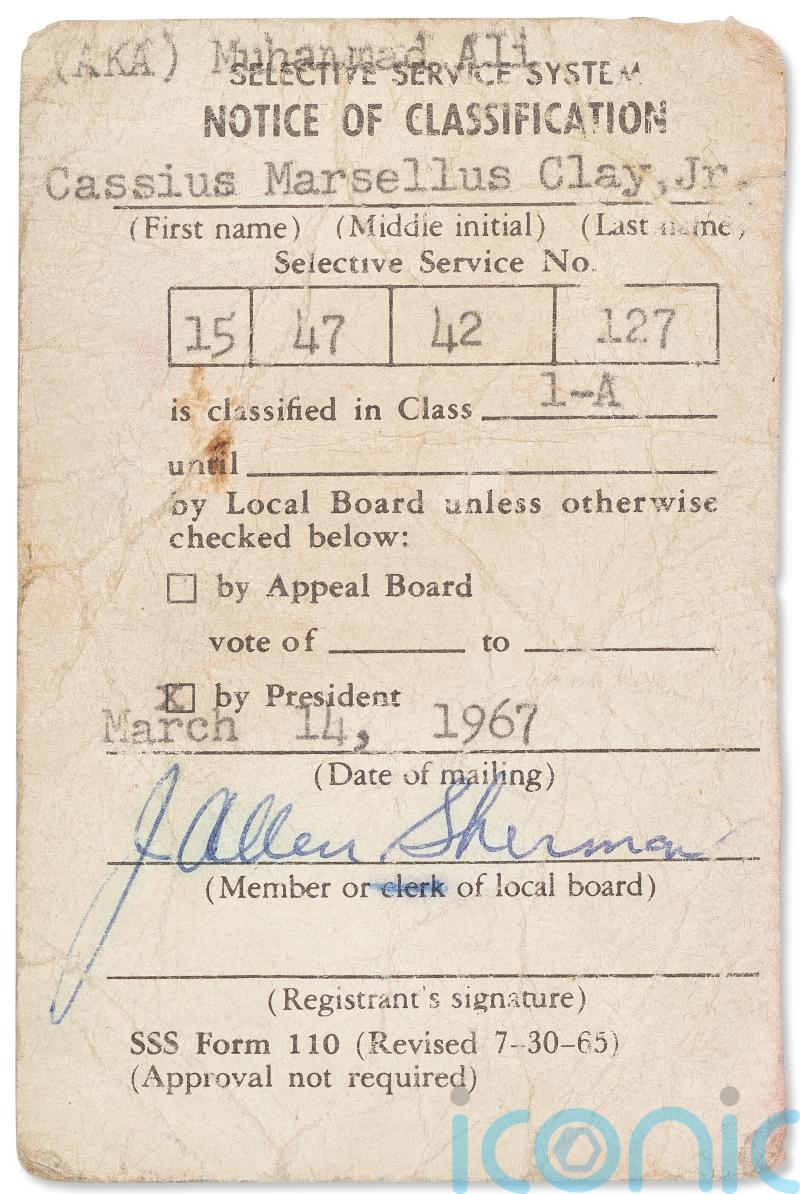 (AKA) Muhammad Ali
SELECTIVE SERVICE SYSTEM
NOTICE OF CLASSIFICATION
Cassius Marsellus Clay,Jr.
(First name) (Middle initial) (Last name)
Selective Service No.
15 47 42 127
is classified in Class 1-A
until
by Local Board unless otherwise
checked below:
by Appeal Board
vote of to
X by President
March 14, 1967
(Date of mailing)
J Allen Sherman
(Member or clerk of local board)
(Registrant's signature)
SSS Form 110 (Revised 7-30-65)
(Approval not required)
iconic